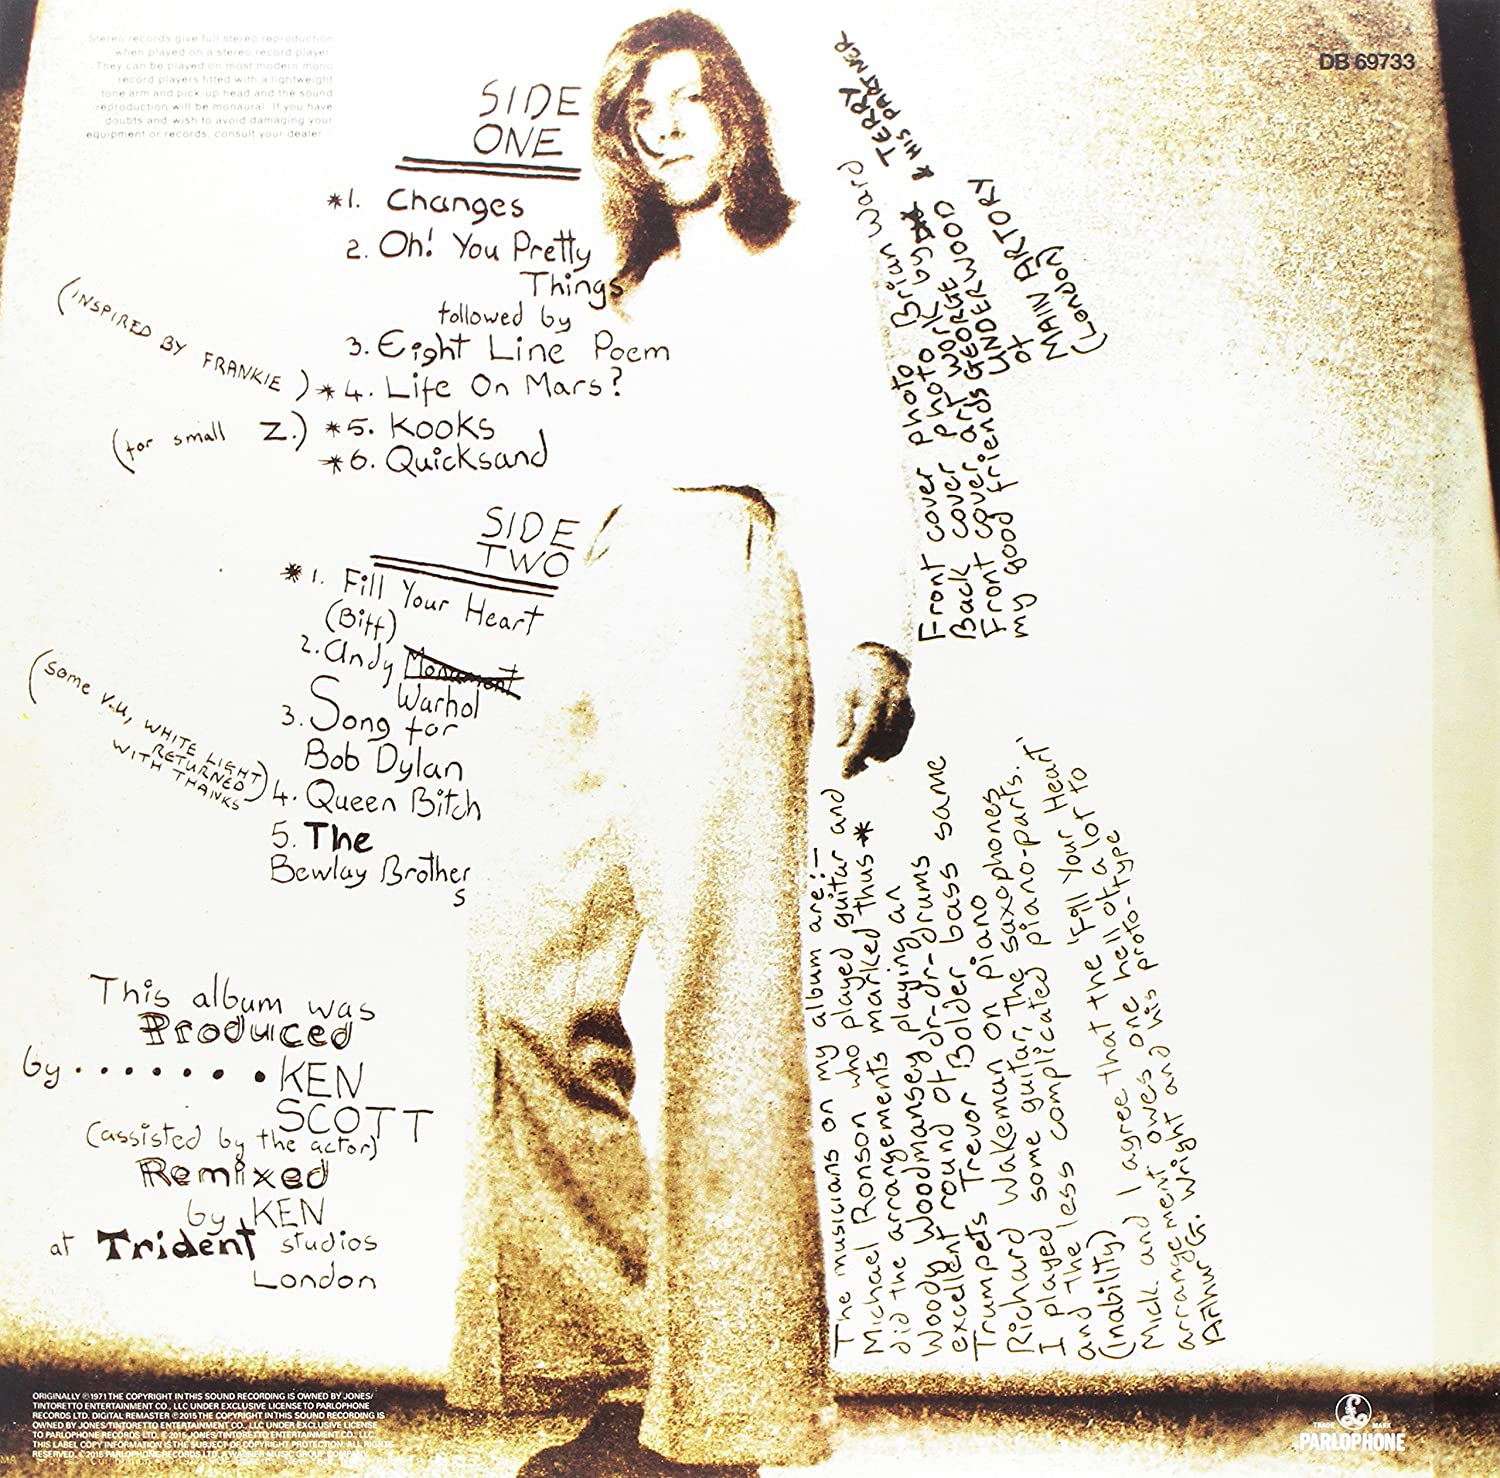 Stereo records give full stereo reproduction
when played on a stereo record player.
They can be played on most modern mono
record players fitted with a lightweight
tone arm and pick-up head and the sound
reproduction will be monaural. If you have
doubts and wish to avoid damaging your
equipment or records, consult your dealer.
DB 69733
SIDE
ONE
*1. Changes
2. Oh! You Pretty
Things
followed by
3. Eight Line Poem
(INSPIRED BY FRANKIE) *4. Life On Mars?
(for small Z.) *5. Kooks
*6. Quicksand
SIDE
TWO
*1. Fill Your Heart
(Biff)
2. Andy Monument
Warhol
3. Song for
Bob Dylan
(Some V.U, WHITE LIGHT
RETURNED
WITH THANKS)
4. Queen Bitch
5. The
Bewlay Brother
s
This album was
Produced
by ....... KEN
SCOTT
(assisted by the actor)
Remixed
by KEN
at Trident studios
London
Front cover photo Brian Ward
Back cover photo by
Front cover art work by TERRY
& HIS PARTNER
my good friends GEORGE
UNDERWOOD
of
MAIN ARTORY
(London)
The musicians on my album are:-
Michael Ronson who played guitar and
did the arrangements marked thus *
Woody Woodmansey playing an
excellent round of dr-dr-drums
Trumpets Trevor Bolder bass same
Richard Wakeman on piano
I played some guitar, the saxophones
and the less complicated piano-parts.
(Inability)
Mick and I agree that the 'Fill Your Heart'
arrangement owes one hell of a lot to
Arthur G. Wright and his proto-type
ORIGINALLY ℗ 1971 THE COPYRIGHT IN THIS SOUND RECORDING IS OWNED BY JONES/
TINTORETTO ENTERTAINMENT CO., LLC UNDER EXCLUSIVE LICENSE TO PARLOPHONE
RECORDS LTD. DIGITAL REMASTER ℗ 2015 THE COPYRIGHT IN THIS SOUND RECORDING IS
OWNED BY JONES/TINTORETTO ENTERTAINMENT CO., LLC UNDER EXCLUSIVE LICENSE
TO PARLOPHONE RECORDS LTD. © 2015 JONES/TINTORETTO ENTERTAINMENT CO., LLC.
THIS LABEL COPY INFORMATION IS THE SUBJECT OF COPYRIGHT PROTECTION. ALL RIGHTS
RESERVED. © 2015 PARLOPHONE RECORDS LTD, A WARNER MUSIC GROUP COMPANY.
TRADE MARK
PARLOPHONE